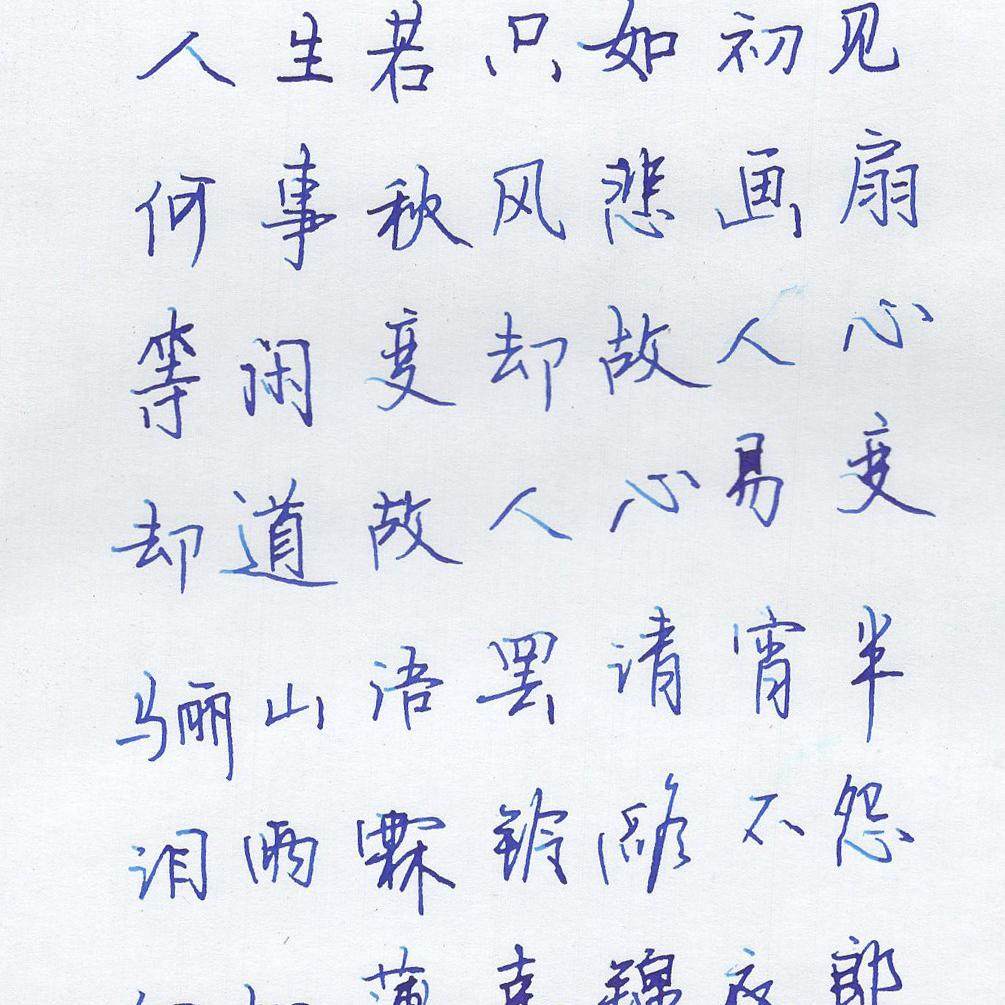 人生若只如初见
何事秋风悲画扇
等闲变却故人心
却道故人心易变
骊山语罢清宵半
泪雨霖铃不怨
薄幸锦衣郎